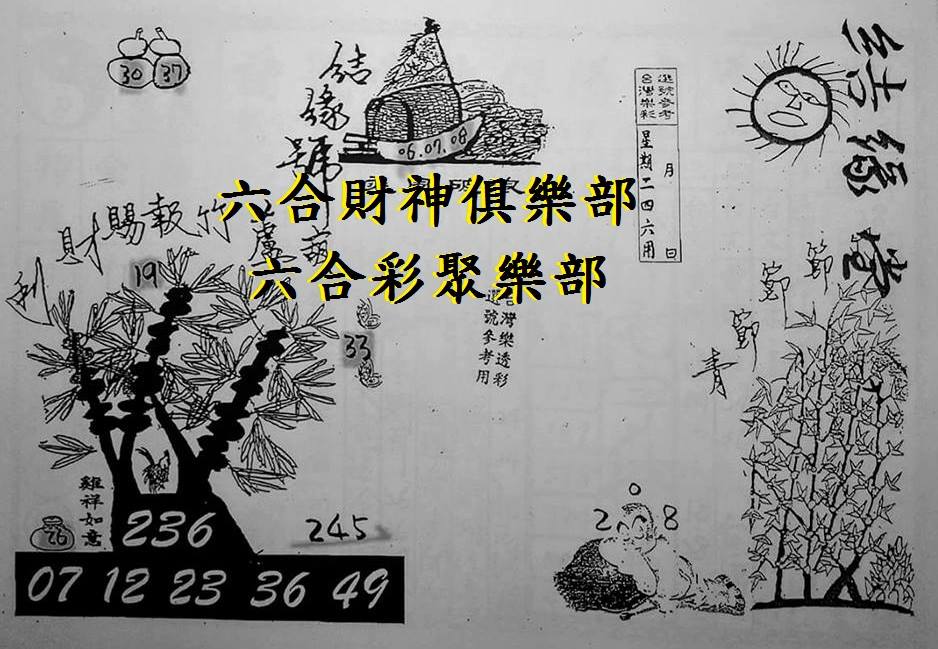 30 37
結緣號
06.07.08
進號參考
台灣樂彩
月 日
星期二四六用
六合財神俱樂部
六合彩聚樂部
利財賜報竹
19
33
台灣樂透彩
選號參考用
節節節青
雞祥如意
26
236
245
2 0 8
07 12 23 36 49